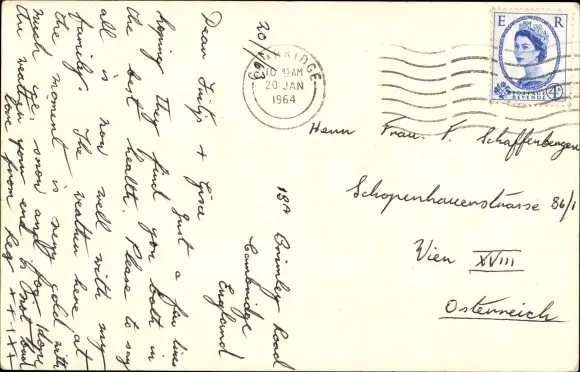 18A Brimley Road
Cambridge
England
20/1/63
Dear + Grisa
Just a few lines
hoping they find you both in
the best health. Please to say
all is now well with my
family. The weather here at
the moment is very cold with
much ice, snow and fog. Hope
the weather your end is not bad
love from Reg x + 1 x x
CAMBRIDGE
10 AM
20 JAN
1964
E R
POSTAGE
REVENUE
4D
Herrn Frau. F. Schaffenbergen
Schopenhauerstrasse 86/1
Wien XVIII
Osterreich